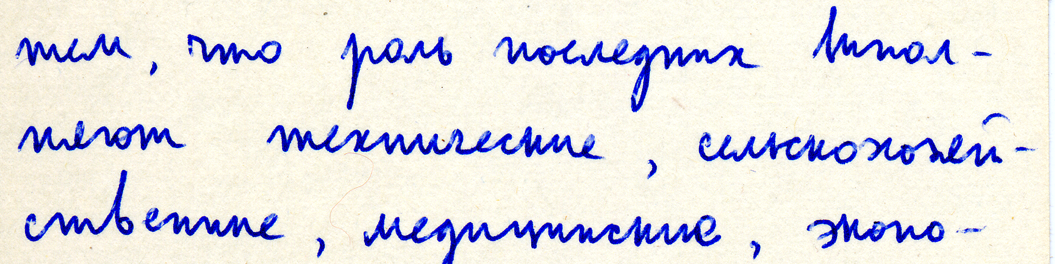 тем, что роль последних выпол-
няют технические, сельскохозяй-
ственные, медицинские, эконо-